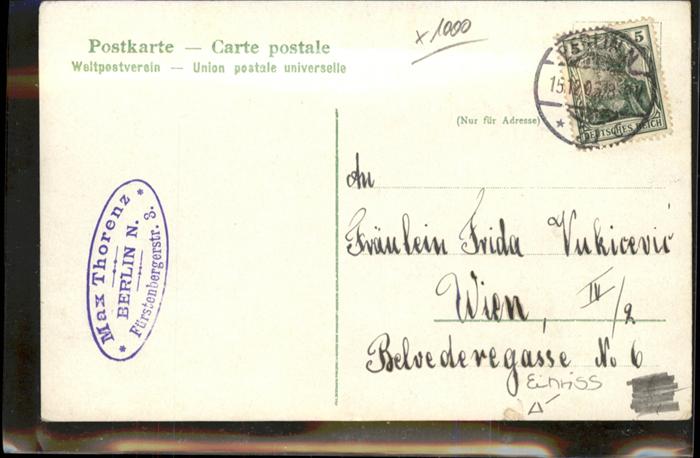 x 1000
Postkarte — Carte postale
Weltpostverein — Union postale universelle
5 5
BERLIN N
DEUTSCHES REICH
(Nur für Adresse)
An
Fräulein Frida Vukicević
Wien, IV/2
Belvederegasse No 6
Einriss
* Max Thorenz *
BERLIN N.
Fürstenbergerstr. 3.